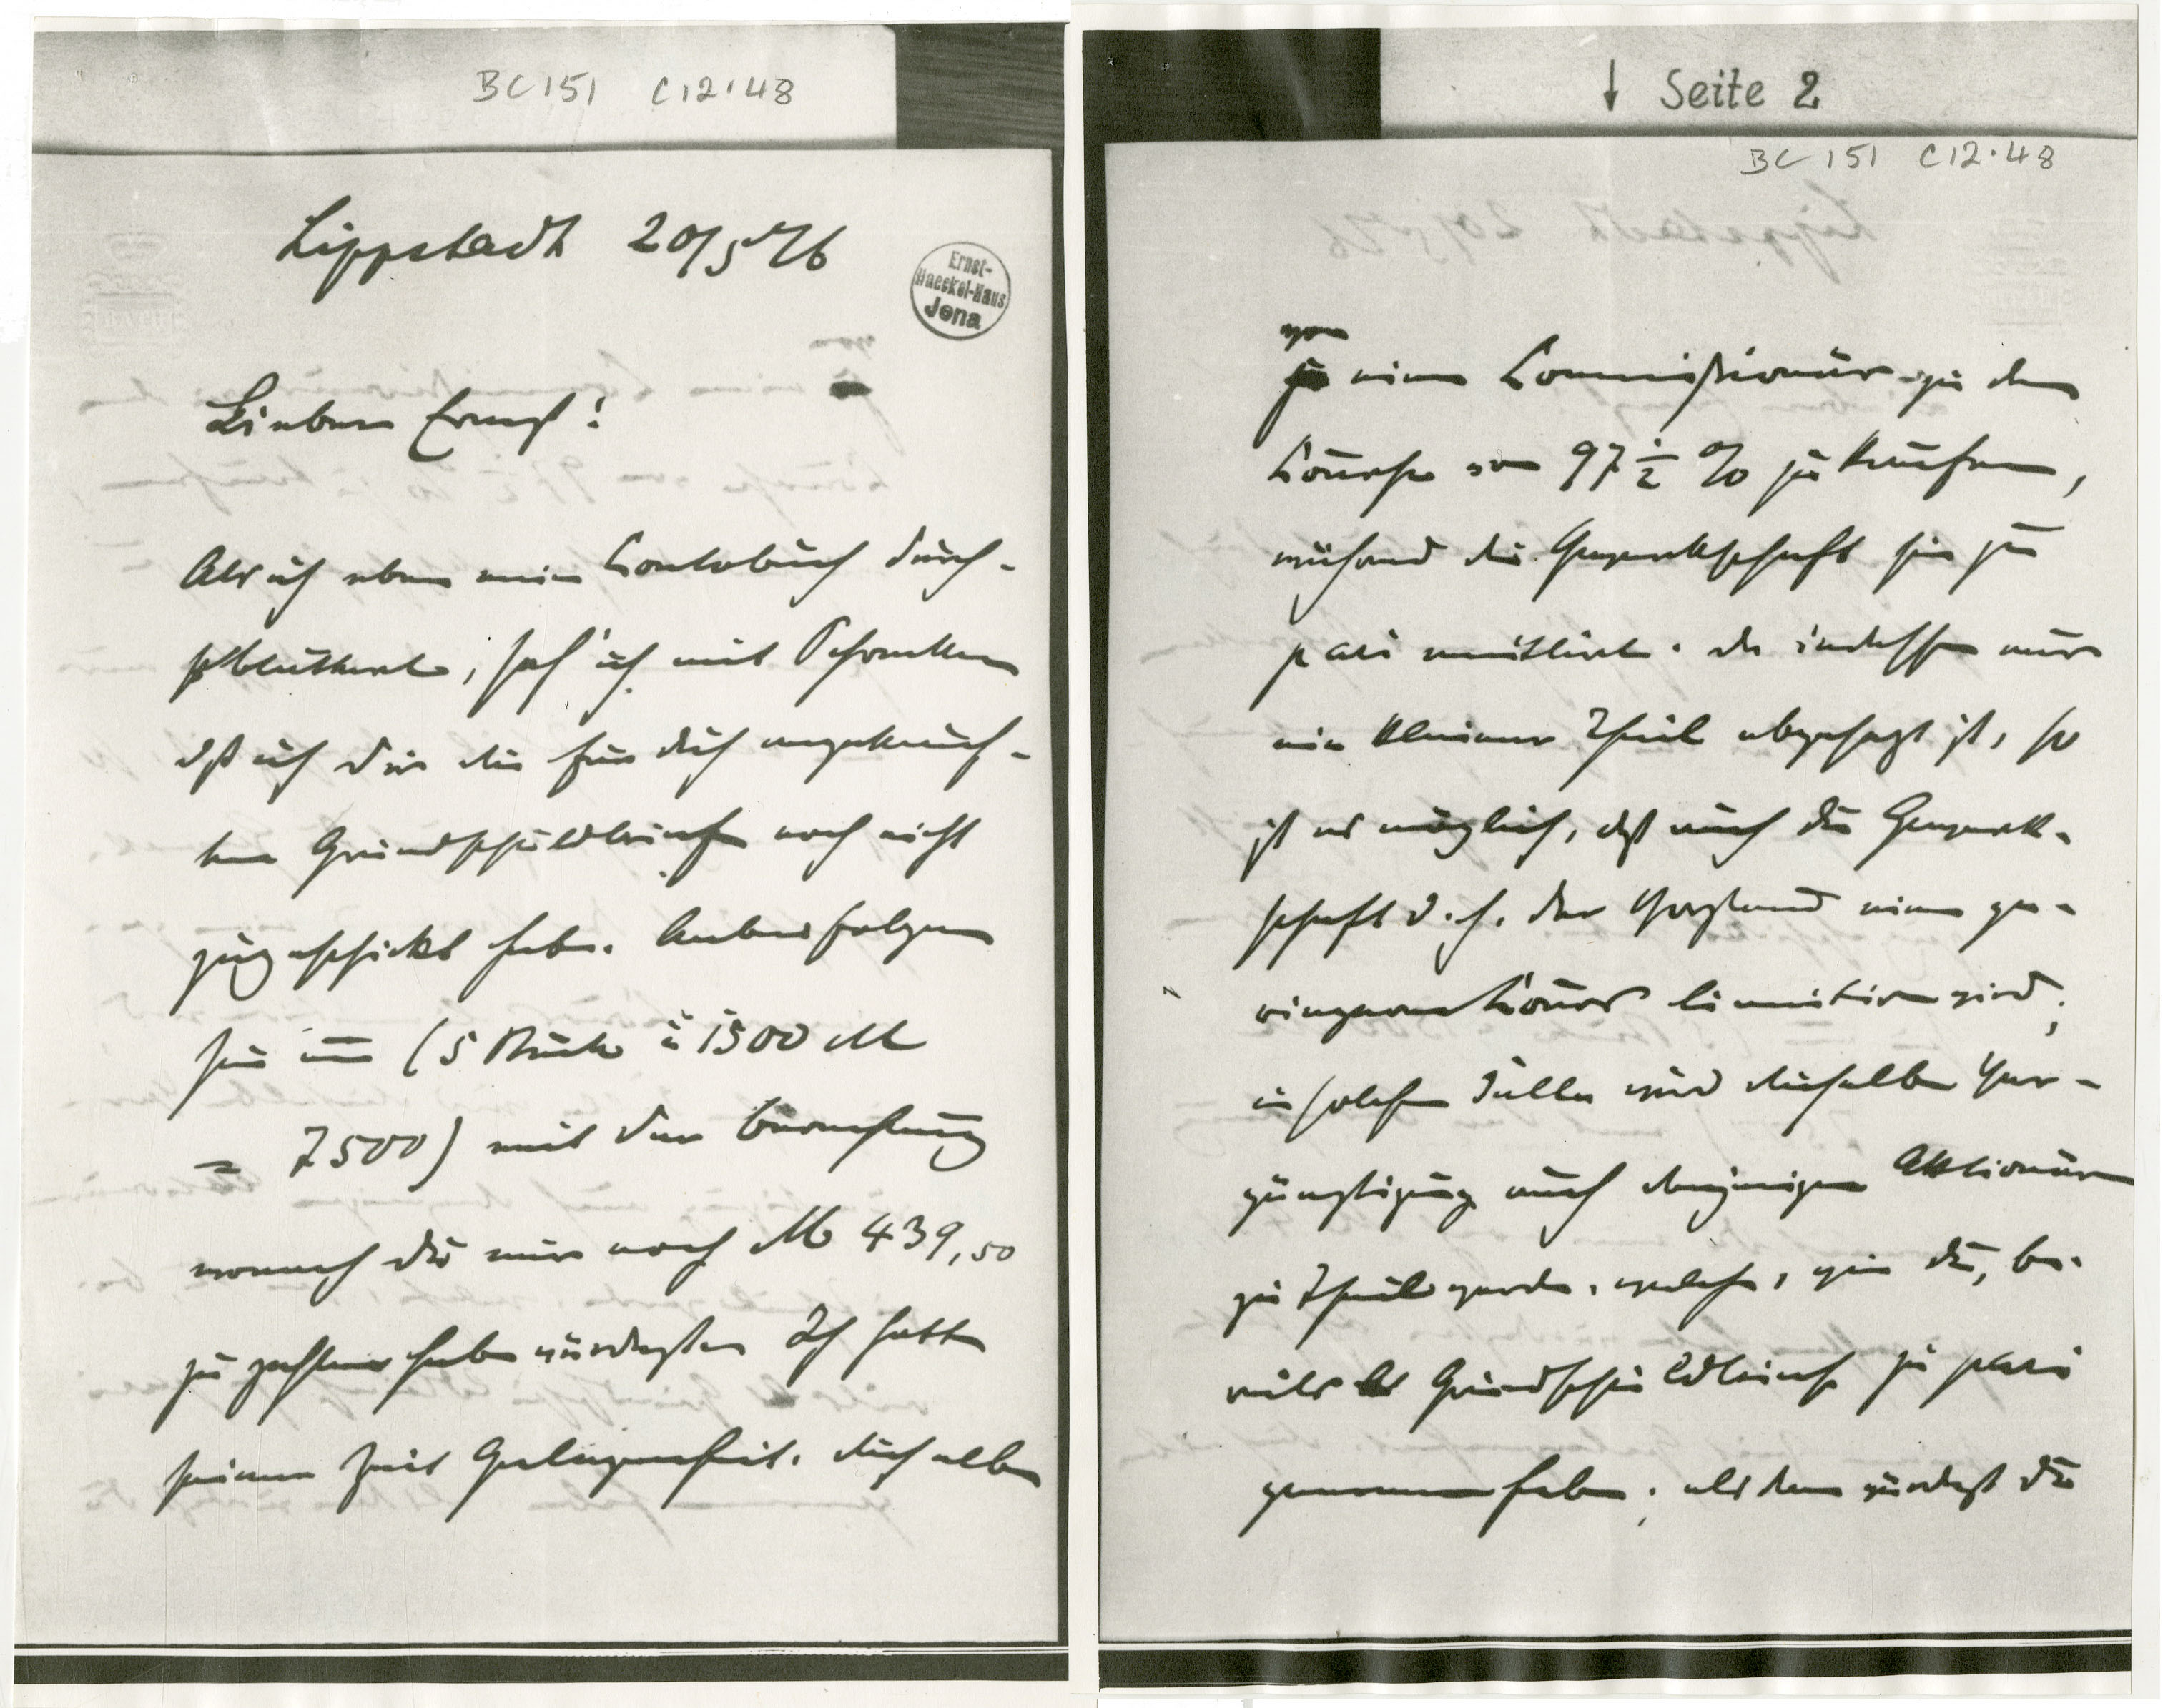 BC 151 C12.48
Lippstadt 20/5 76
Ernst-
Haeckel-Haus
Jena
Lieber Ernst!
Als ich eben mein Contobuch durch-
blätterte, sah ich mit Schrecken
dß ich Dir die für Dich angekauf-
ten Grundschuldbriefe noch nicht
zugeschickt habe. Anbei folgen
sie (5 Stück à 1500 M
= 7500) mit der Berechnung
wonach Du mir noch M 439,50
zu zahlen haben würdest. Ich hatte
seiner Zeit Gelegenheit, dieselben
↓ Seite 2
BC 151 C12.48
von
einem Commissionär zu dem
Course von 97 1/2 % zu kaufen,
während die Gewerkschaft sie zu
pari emittirte. Da indessen nur
ein kleiner Theil abgesetzt ist, so
ist es möglich, dß auch die Gewerk-
schaft d. h. der Vorstand einen ge-
ringeren Cours limitiren wird;
in solchem Falle wird dieselbe Ver-
günstigung auch denjenigen Aktionären
zu Theil werden, welche, wie Du, be-
reits Grundschuldbriefe zu pari
genommen haben; alsdann würdest Du